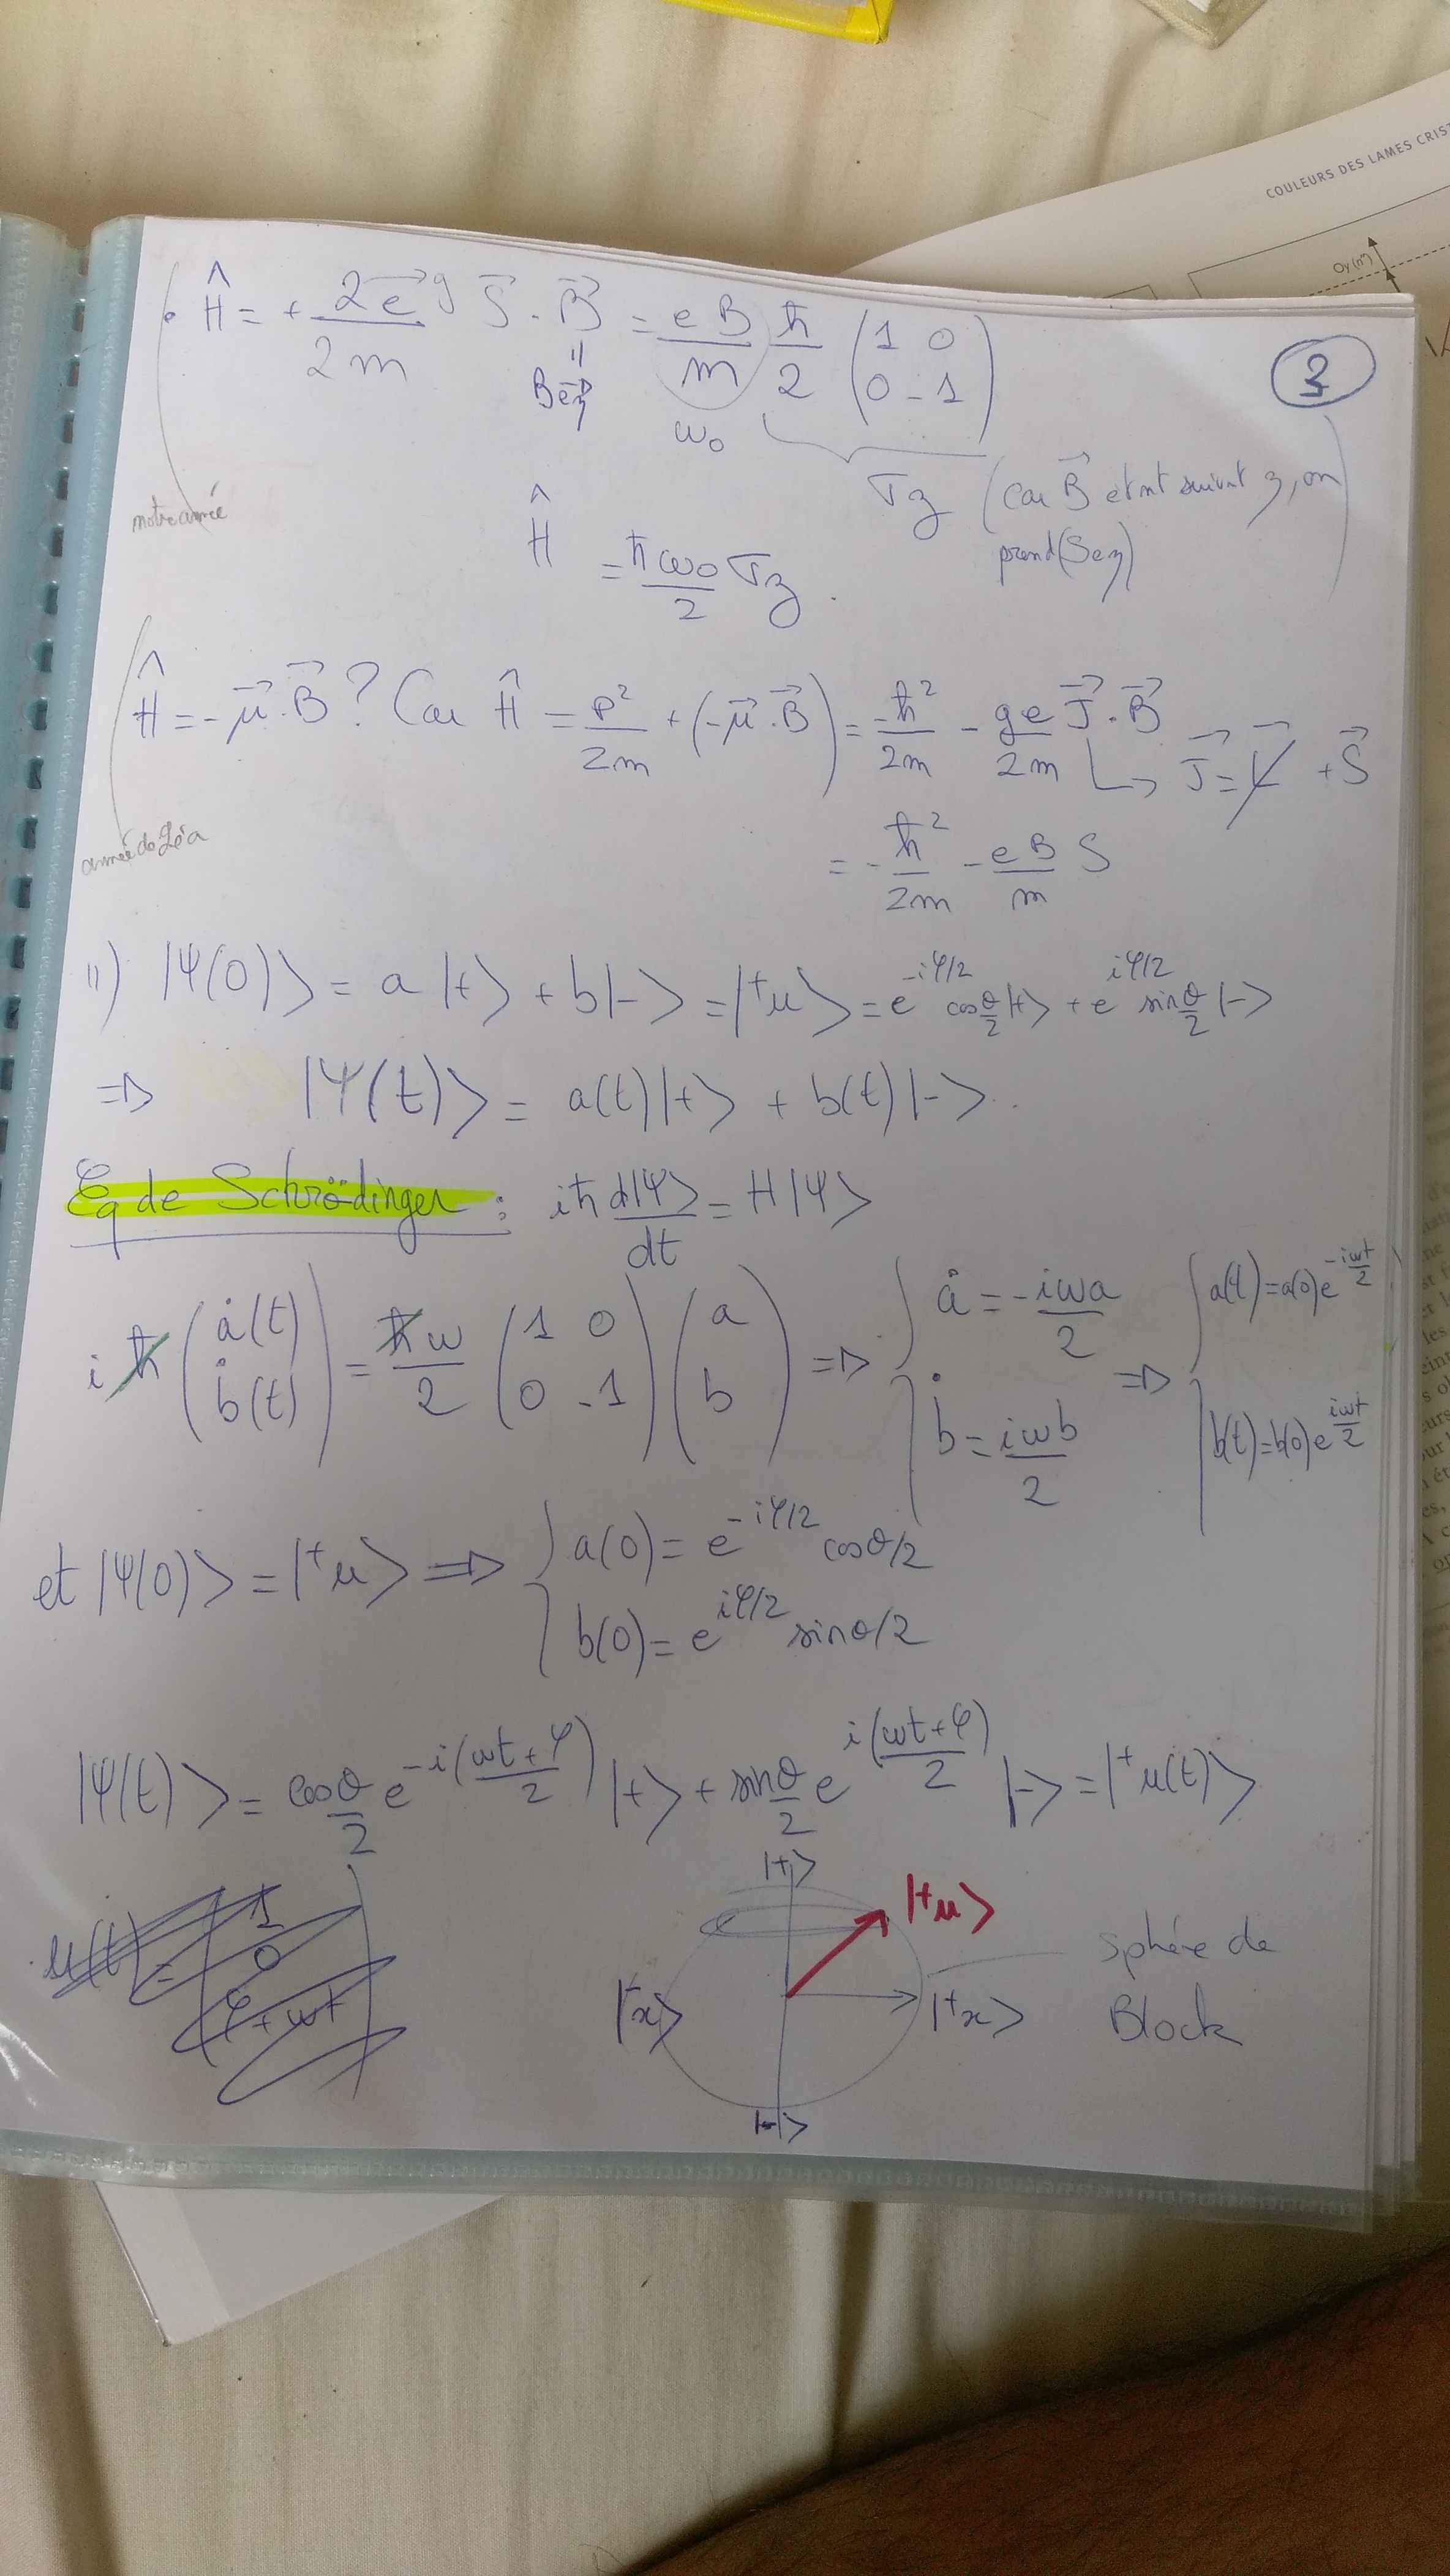 COULEURS DES LAMES CRIS
Oy(n")
3
• Ĥ = + 2e/2m g S⃗ . B⃗ = eB/m ħ/2 (1 0 / 0 -1)
"
B e⃗z
ω₀
σz (car B⃗ etant suivant z, on
prend (Sez)
notre année
Ĥ = ħω₀/2 σz.
Ĥ = -μ⃗.B⃗ ? Car Ĥ = p²/2m + (-μ⃗.B⃗) = -ħ²/2m - ge/2m J⃗.B⃗
↳ J⃗ = L⃗ + S⃗
= -ħ²/2m - eB/m S
année de Léa
11) |Ψ(0)> = a |+> + b |-> = |+u> = e^(-iφ/2) cosθ/2 |+> + e^(iφ/2) sinθ/2 |->
=> |Ψ(t)> = a(t) |+> + b(t) |->.
Eq de Schrödinger : iħ d|Ψ>/dt = H |Ψ>
iħ (ȧ(t) / ḃ(t)) = ħω/2 (1 0 / 0 -1) (a / b) => { ȧ = -iωa/2 / ḃ = iωb/2 => { a(t) = a(0) e^(-iωt/2) / b(t) = b(0) e^(iωt/2)
et |Ψ(0)> = |+u> => { a(0) = e^(-iφ/2) cosθ/2 / b(0) = e^(iφ/2) sinθ/2
|Ψ(t)> = cosθ/2 e^(-i(ωt+φ)/2) |+> + sinθ/2 e^(i(ωt+φ)/2) |-> = |+u(t)>
u(t) = 1
0
φ + ωt
|+>
|+u>
|-x>
|+x>
|->
sphère de
Block